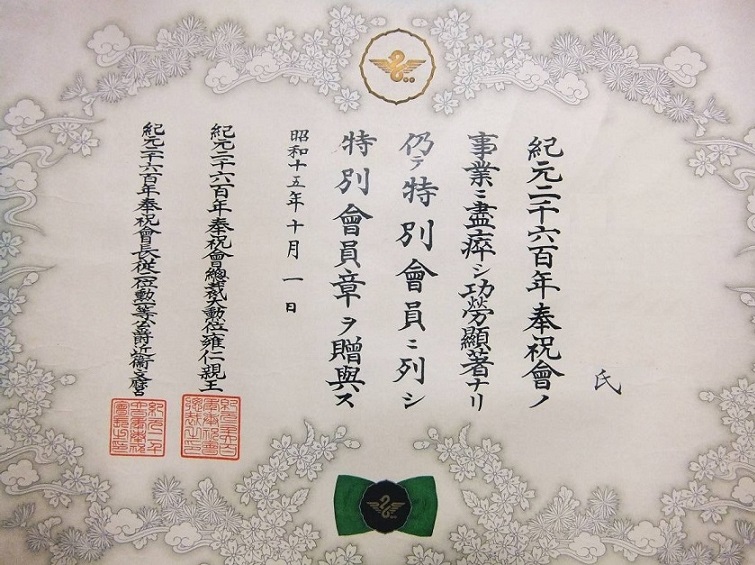 氏
紀元二千六百年奉祝會ノ
事業ニ盡瘁シ功勞顯著ナリ
仍テ特別會員ニ列シ
特別會員章ヲ贈與ス
昭和十五年十月一日
紀元二千六百年奉祝會總裁大勳位雍仁親王
紀元二千六百年奉祝會長從二位勳一等公爵近衞文麿